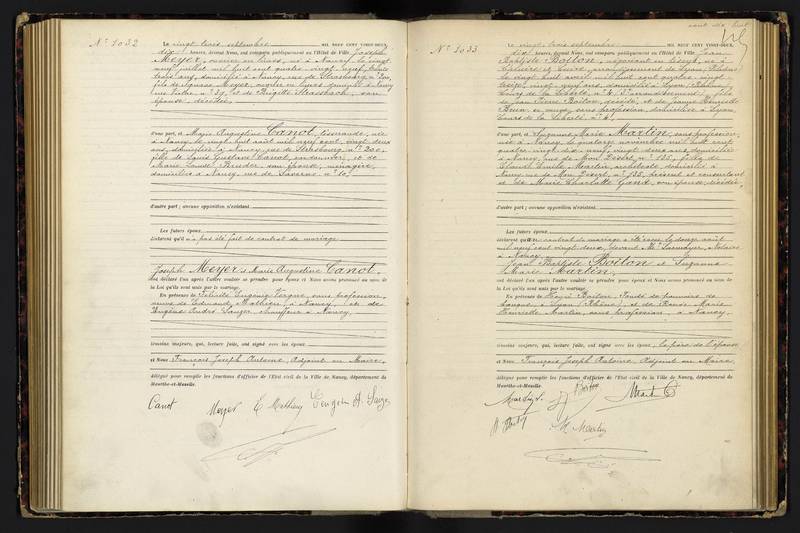 N° 1032
Le vingt trois septembre MIL NEUF CENT VINGT-DEUX,
dix heures, devant Nous, ont comparu publiquement en l'Hôtel de Ville Joseph
Meyer, ouvrier en limes, né à Nancy, le vingt
neuf juillet mil huit cent quatre vingt neuf, trente
trois ans, domicilié à Nancy, rue de Strasbourg n° 200,
fils de Meyer, ouvrier en limes, domicilié à Nancy
et de Brigitte Strasbach, son
épouse, décédée
d'une part, et Marie Augustine Canot, tisserande, née
à Nancy, le vingt huit août mil neuf cent, vingt deux
ans, domiciliée à Nancy, rue de Strasbourg, n° 200,
fille de Louis Gustave Canot, cordonnier, et de
Marie Louise son épouse, ménagère,
domiciliés à Nancy, rue de Saverne n° 10,
d'autre part ; aucune opposition n'existant.
Les futurs époux
déclarent qu'il n'a pas été fait de contrat de mariage
Joseph Meyer et Marie Augustine Canot,
ont déclaré l'un après l'autre vouloir se prendre pour époux et Nous avons prononcé au nom de
la Loi qu'ils sont unis par le mariage.
En présence de Eugénie sans profession,
à Nancy, et de
Eugène André chauffeur à Nancy,
témoins majeurs, qui, lecture faite, ont signé avec les époux
et Nous François Joseph Antoine, Adjoint au Maire,
délégué pour remplir les fonctions d'officier de l'État civil de la Ville de Nancy, département de
Meurthe-et-Moselle.
Canot Meyer
cent dix huit
N° 1033
Le vingt trois septembre MIL NEUF CENT VINGT-DEUX,
dix heures, devant Nous, ont comparu publiquement en l'Hôtel de Ville Jean
Baptiste Boiton, négociant en tissus, né à
Caluire et Cuire, arrondissement de Lyon, Rhône,
le vingt huit avril mil huit cent quatre vingt
treize, vingt neuf ans, domicilié à Lyon, Rhône,
Cours de la Liberté, n° 4, arrondissement, fils
de Jean Pierre Boiton, décédé, et de Jeanne Henriette
sa veuve, sans profession, domiciliée à Lyon,
Cours de la Liberté n° 4,
d'une part, et Suzanne Marie Martin, sans profession,
née à Nancy, le quatorze novembre mil huit cent
quatre vingt dix neuf, vingt deux ans, domiciliée
à Nancy, rue de Mon Désert n° 135, fille de
Martin, architecte, domicilié à
Nancy, rue de Mon Désert, n° 135, présent et consentant
et de Marie Charlotte son épouse, décédée,
d'autre part ; aucune opposition n'existant.
Les futurs époux
déclarent qu'un contrat de mariage a été reçu le douze août
mil neuf cent vingt deux, devant Me Notaire
à Nancy.
Jean Baptiste Boiton et Suzanne
Marie Martin,
ont déclaré l'un après l'autre vouloir se prendre pour époux et Nous avons prononcé au nom de
la Loi qu'ils sont unis par le mariage.
En présence de Boiton, Fondé de pouvoirs de
banque, à Lyon (Rhône), et de Marie
Henriette Martin, sans profession, à Nancy,
témoins majeurs, qui, lecture faite, ont signé avec les époux, le père de l'épouse
et Nous François Joseph Antoine, Adjoint au Maire
délégué pour remplir les fonctions d'officier de l'État civil de la Ville de Nancy, département de
Meurthe-et-Moselle.
Boiton
Martin